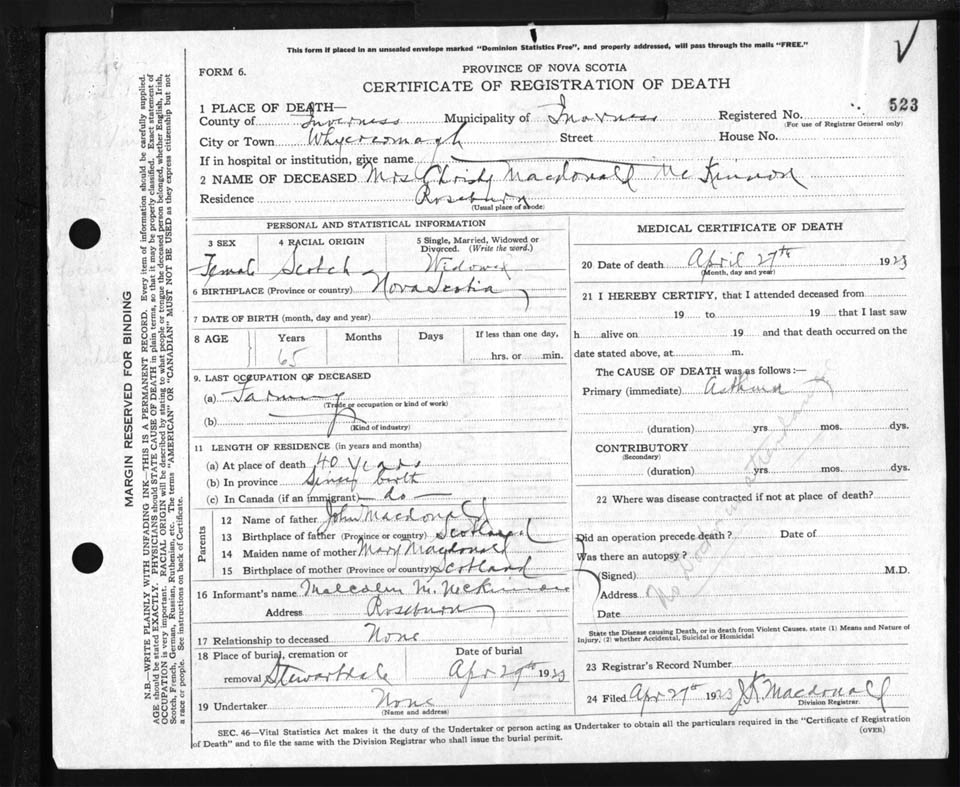 This form if placed in an unsealed envelope marked "Dominion Statistics Free", and properly addressed, will pass through the mails "FREE."
FORM 6.
PROVINCE OF NOVA SCOTIA
CERTIFICATE OF REGISTRATION OF DEATH
523
1 PLACE OF DEATH—
County of Inverness Municipality of Inverness Registered No.
(For use of Registrar General only)
City or Town Whycocomagh Street House No.
If in hospital or institution, give name
2 NAME OF DECEASED Mrs Christy Macdonald McKinnon
Residence Roseburn
(Usual place of abode)
PERSONAL AND STATISTICAL INFORMATION
3 SEX 4 RACIAL ORIGIN 5 Single, Married, Widowed or Divorced. (Write the word.)
Female Scotch Widowed
6 BIRTHPLACE (Province or country) Nova Scotia
7 DATE OF BIRTH (month, day and year)
8 AGE Years Months Days If less than one day,
65 hrs. or min.
9. LAST OCCUPATION OF DECEASED
(a) Farming
(Trade or occupation or kind of work)
(b)
(Kind of industry)
11 LENGTH OF RESIDENCE (in years and months)
(a) At place of death 40 years
(b) In province Since birth
(c) In Canada (if an immigrant) — do —
Parents
12 Name of father John Macdonald
13 Birthplace of father (Province or country) Scotland
14 Maiden name of mother Mary Macdonald
15 Birthplace of mother (Province or country) Scotland
16 Informant's name Malcolm M. McKinnon
Address Roseburn
17 Relationship to deceased None
18 Place of burial, cremation or Date of burial
removal Stewartdale Apr 29th 1923
19 Undertaker None
(Name and address)
MEDICAL CERTIFICATE OF DEATH
20 Date of death April 27th 1923
(Month, day and year)
21 I HEREBY CERTIFY, that I attended deceased from
19 to 19 that I last saw
h alive on 19 and that death occurred on the
date stated above, at m.
The CAUSE OF DEATH was as follows:—
Primary (immediate) Asthma
(duration) yrs. mos. dys.
CONTRIBUTORY
(Secondary)
(duration) yrs. mos. dys.
22 Where was disease contracted if not at place of death?
Did an operation precede death? Date of
Was there an autopsy?
(Signed) M.D.
Address
Date
No Doctor in attendance
State the Disease causing Death, or in death from Violent Causes, state (1) Means and Nature of
Injury, (2) whether Accidental, Suicidal or Homicidal
23 Registrar's Record Number
24 Filed Apr 27th 1923 J K Macdonald
Division Registrar.
SEC. 46—Vital Statistics Act makes it the duty of the Undertaker or person acting as Undertaker to obtain all the particulars required in the "Certificate of Registration
of Death" and to file the same with the Division Registrar who shall issue the burial permit.
(OVER)
MARGIN RESERVED FOR BINDING
N.B.—WRITE PLAINLY WITH UNFADING INK—THIS IS A PERMANENT RECORD. Every item of information should be carefully supplied.
AGE should be stated EXACTLY. PHYSICIANS should STATE CAUSE OF DEATH in plain terms, so that it may be properly classified. Exact statement of
OCCUPATION is very important. RACIAL ORIGIN will be described by stating to what people or tongue the deceased person belonged, whether English, Irish,
Scotch, French, German, Russian, Ruthenian, etc. The terms "AMERICAN" OR "CANADIAN" MUST NOT BE USED as they express citizenship but not
a race or people. See instructions on back of Certificate.